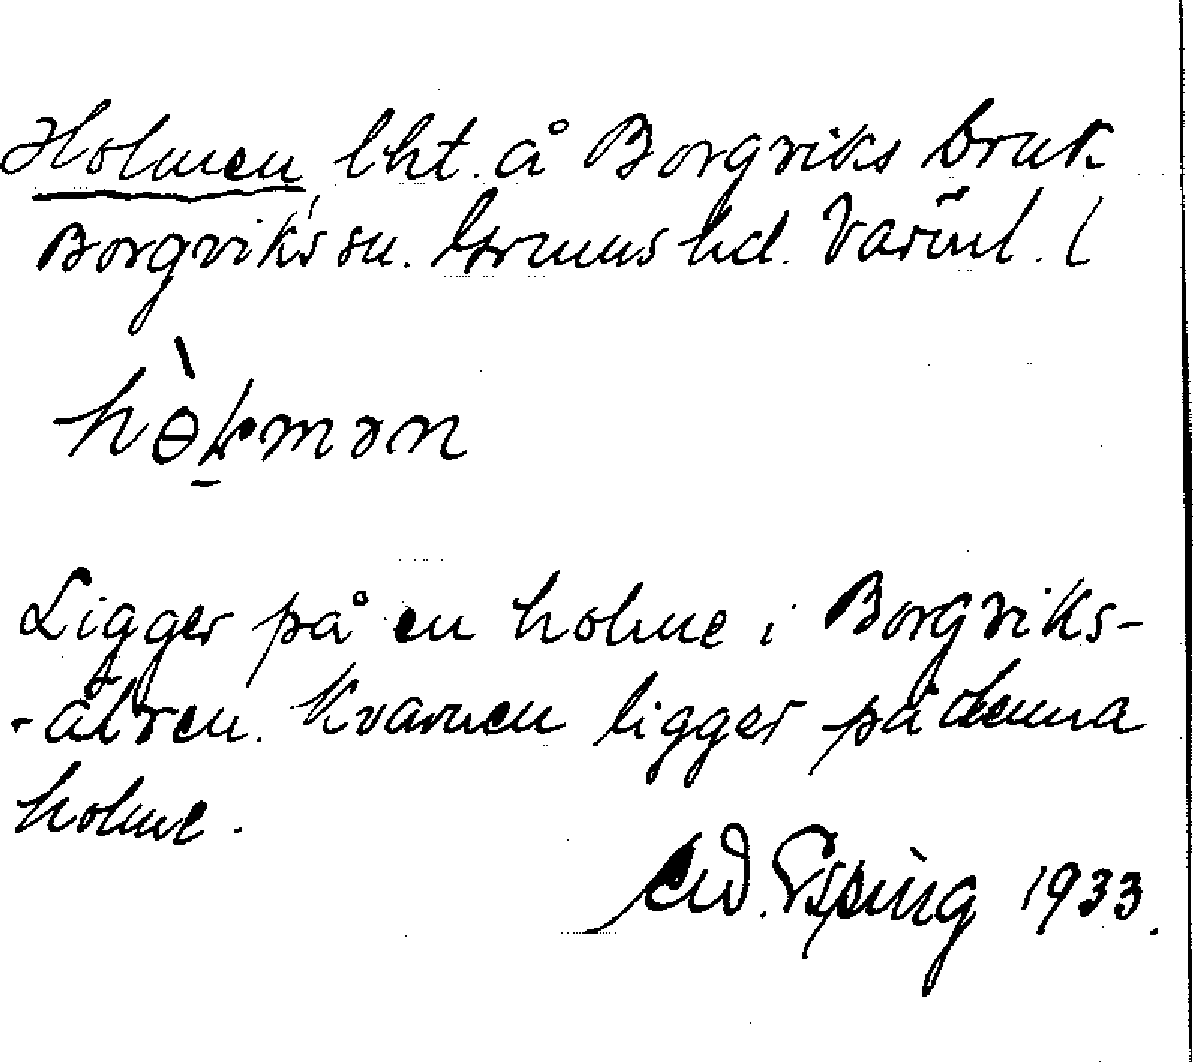 Holmen lht. å Borgviks bruk
Borgviks sn. Grums hd. Värml. l
hò̱mən
Ligger på en holme i Borgviks-
-älven. Kvarnen ligger på denna
holme.
Ad. Esping 1933.